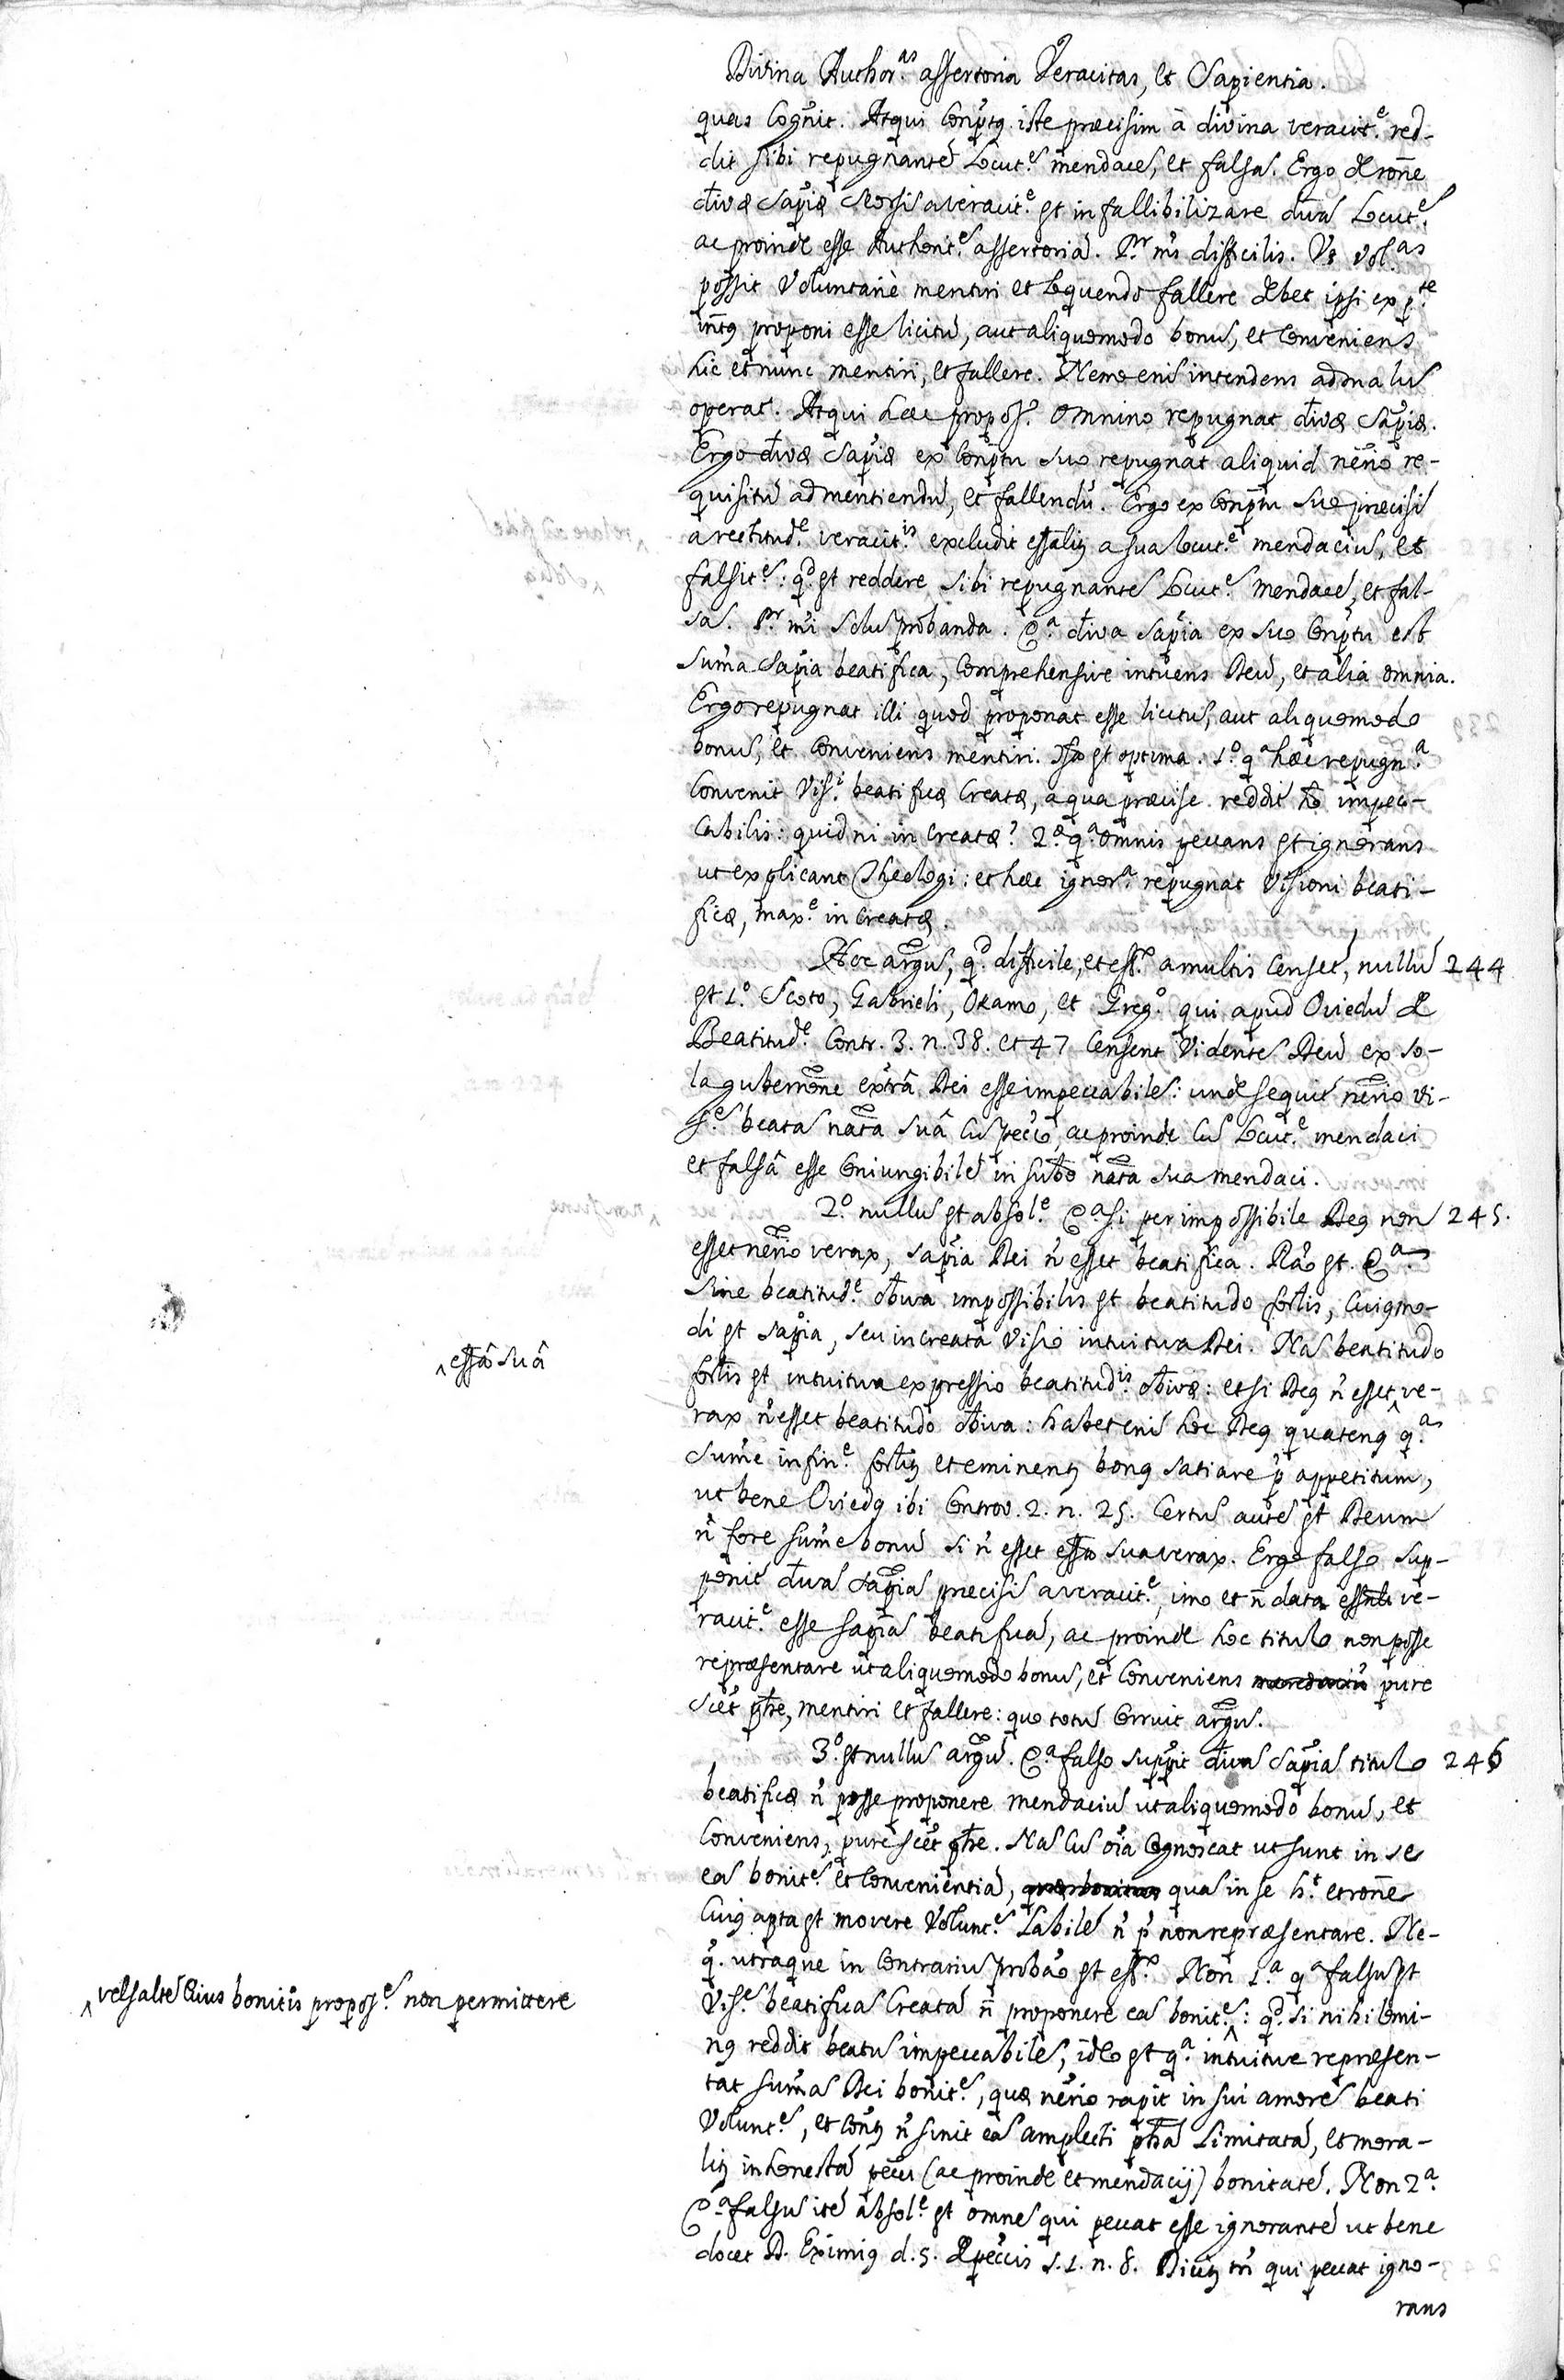 Divina Author.as assertoria Veracitas, et Sapientia.
quas Cognit. Atqui Conptq iste præcisim à divina veracit.e red-
dit sibi repugnantes Locut.es mendaces, et falsas. Ergo de rone
divæ Sapiæ seorsis a veracit.e est infallibilizare divas Locut.es
ac proinde esse Authorit.es assertoria. Pr. ms difficilis. Vt vol.as
possit Voluntarie mentiri et loquendo fallere debet ipsi ex p.te
intq proponi esse licitu, aut aliquomodo bonu, et Conveniens
hic et nunc mentiri, et fallere. Nemo eni intendens ad malu
operat. Atqui hæc propos. omnino repugnat divæ Sapiæ.
Ergo divæ Sapiæ ex Conptu suo repugnat aliquid nerio re-
quisitu ad mentiendu, et fallendu. Ergo ex Conptu suo præcisi
a rectitud.e veracit.is excludit essaliq a sua Locut.e mendaciu, et
falsit.e: qd. est reddere sibi repugnantes Locut.es mendaces, et fal-
sas. Pr. mi solu probanda. Qa. diva Sapia ex suo Conptu est
suma Sapia beatifica, Comprehensive intuens Deu, et alia omnia.
Ergo repugnat illi quod proponat esse licitu, aut aliquomodo
bonu, et Conveniens mentiri. Isto est optima. 1.o qa hæc repugn.a
Convenit Vis.i beatificæ Creatæ, a qua præcise reddit ho impec-
Cabilis: quid ni increatæ? 2.a qa. omnis peccans est ignorans
ut explicant Theologi: et hæc ignor.a repugnat Visioni beati-
ficæ, max.e increatæ.
Hoc argu, qd. difficile, et eff. a multis Censet, nullu 244
est 1.o Scoto, Gabrieli, Okamo, et Greg.o qui apud Oviedu de
Beatitud.e Contr. 3. n. 38. et 47 Censent Videntes Deu ex so-
la gubernone extrâ Dei esse impeccabiles: unde sequit nerio vi-
s.es beatas nata suâ Cu pecco, ac proinde Cu Locut.e mendaci
et falsâ esse Coniungibile in subto nata sua mendaci.
2.o nullu est absol.e Qa. si per impossibile Deq non 245.
esset nerio verax, Sapia Dei n esset beatifica. Rao est. Qa.
Sine beatitud.e obiva impossibilis est beatitudo forlis, Cuiqmo-
di est Sapia, seu increata Visio intuitiva Dei. Na beatitudo
forlis est intuitiva expressio beatitud.is obivæ: et si Deq n esset ^ ve-
^ essâ suâ
rax n esset beatitudo obiva: habet eni hoc Deq quatenq q.a
Sume infin.e forliq et eminenq bonq satiare p appetitum,
ut bene Oviedq ibi Controv. 2. n. 25. Certu aute est Deum
n fore sume bonu si n esset essa sua verax. Ergo falso sup-
ponit divas Sapias præcisi a veracit.e, imo et n data essali ve-
racit.e esse Sapia beatifica, ac proinde hoc titulo non posse
repræsentare ut aliquomodo bonu, et Conveniens pure
scet phe, mentiri et fallere: quo totu Corruit argu.
3.o est nullu argu. Qa falso suppit divas Sapias titulo 246
beatificæ n posse proponere mendaciu ut aliquomodo bonu, et
Conveniens, pure scet phe. Na Cu oia Cognoscat ut sunt in se
ea bonit.es et Convenientia, quas in se h.t et rone
Cuiq apta est movere Volunt.es Labiles n p non repræsentare. Ne-
q. utraque in Contrariu probao est eff. Non 1.a qa falsu est
Vis.es beatificas Creata n proponere eas bonit.es ^: qd. si nihilomi-
^ vel salte Eius bonitis propos.es non permittere
nq reddit beatu impeccabiles, ideo est qa. intuitive repræsen-
tat sumas Dei bonit.es, quæ nerio rapit in sui amore beati
Volunt.es, et Conq n sinit eas amplecti phæ Limitata, et mora-
liq inhonesta pecci (ac proinde et mendacij) bonitate. Non 2.a
Qa. falsu ite absol.e est omne qui peccat esse ignorante ut bene
docet D. Eximiq d. 5. de peccis s. 1. n. 8. Diciq tn qui peccat igno-
rans